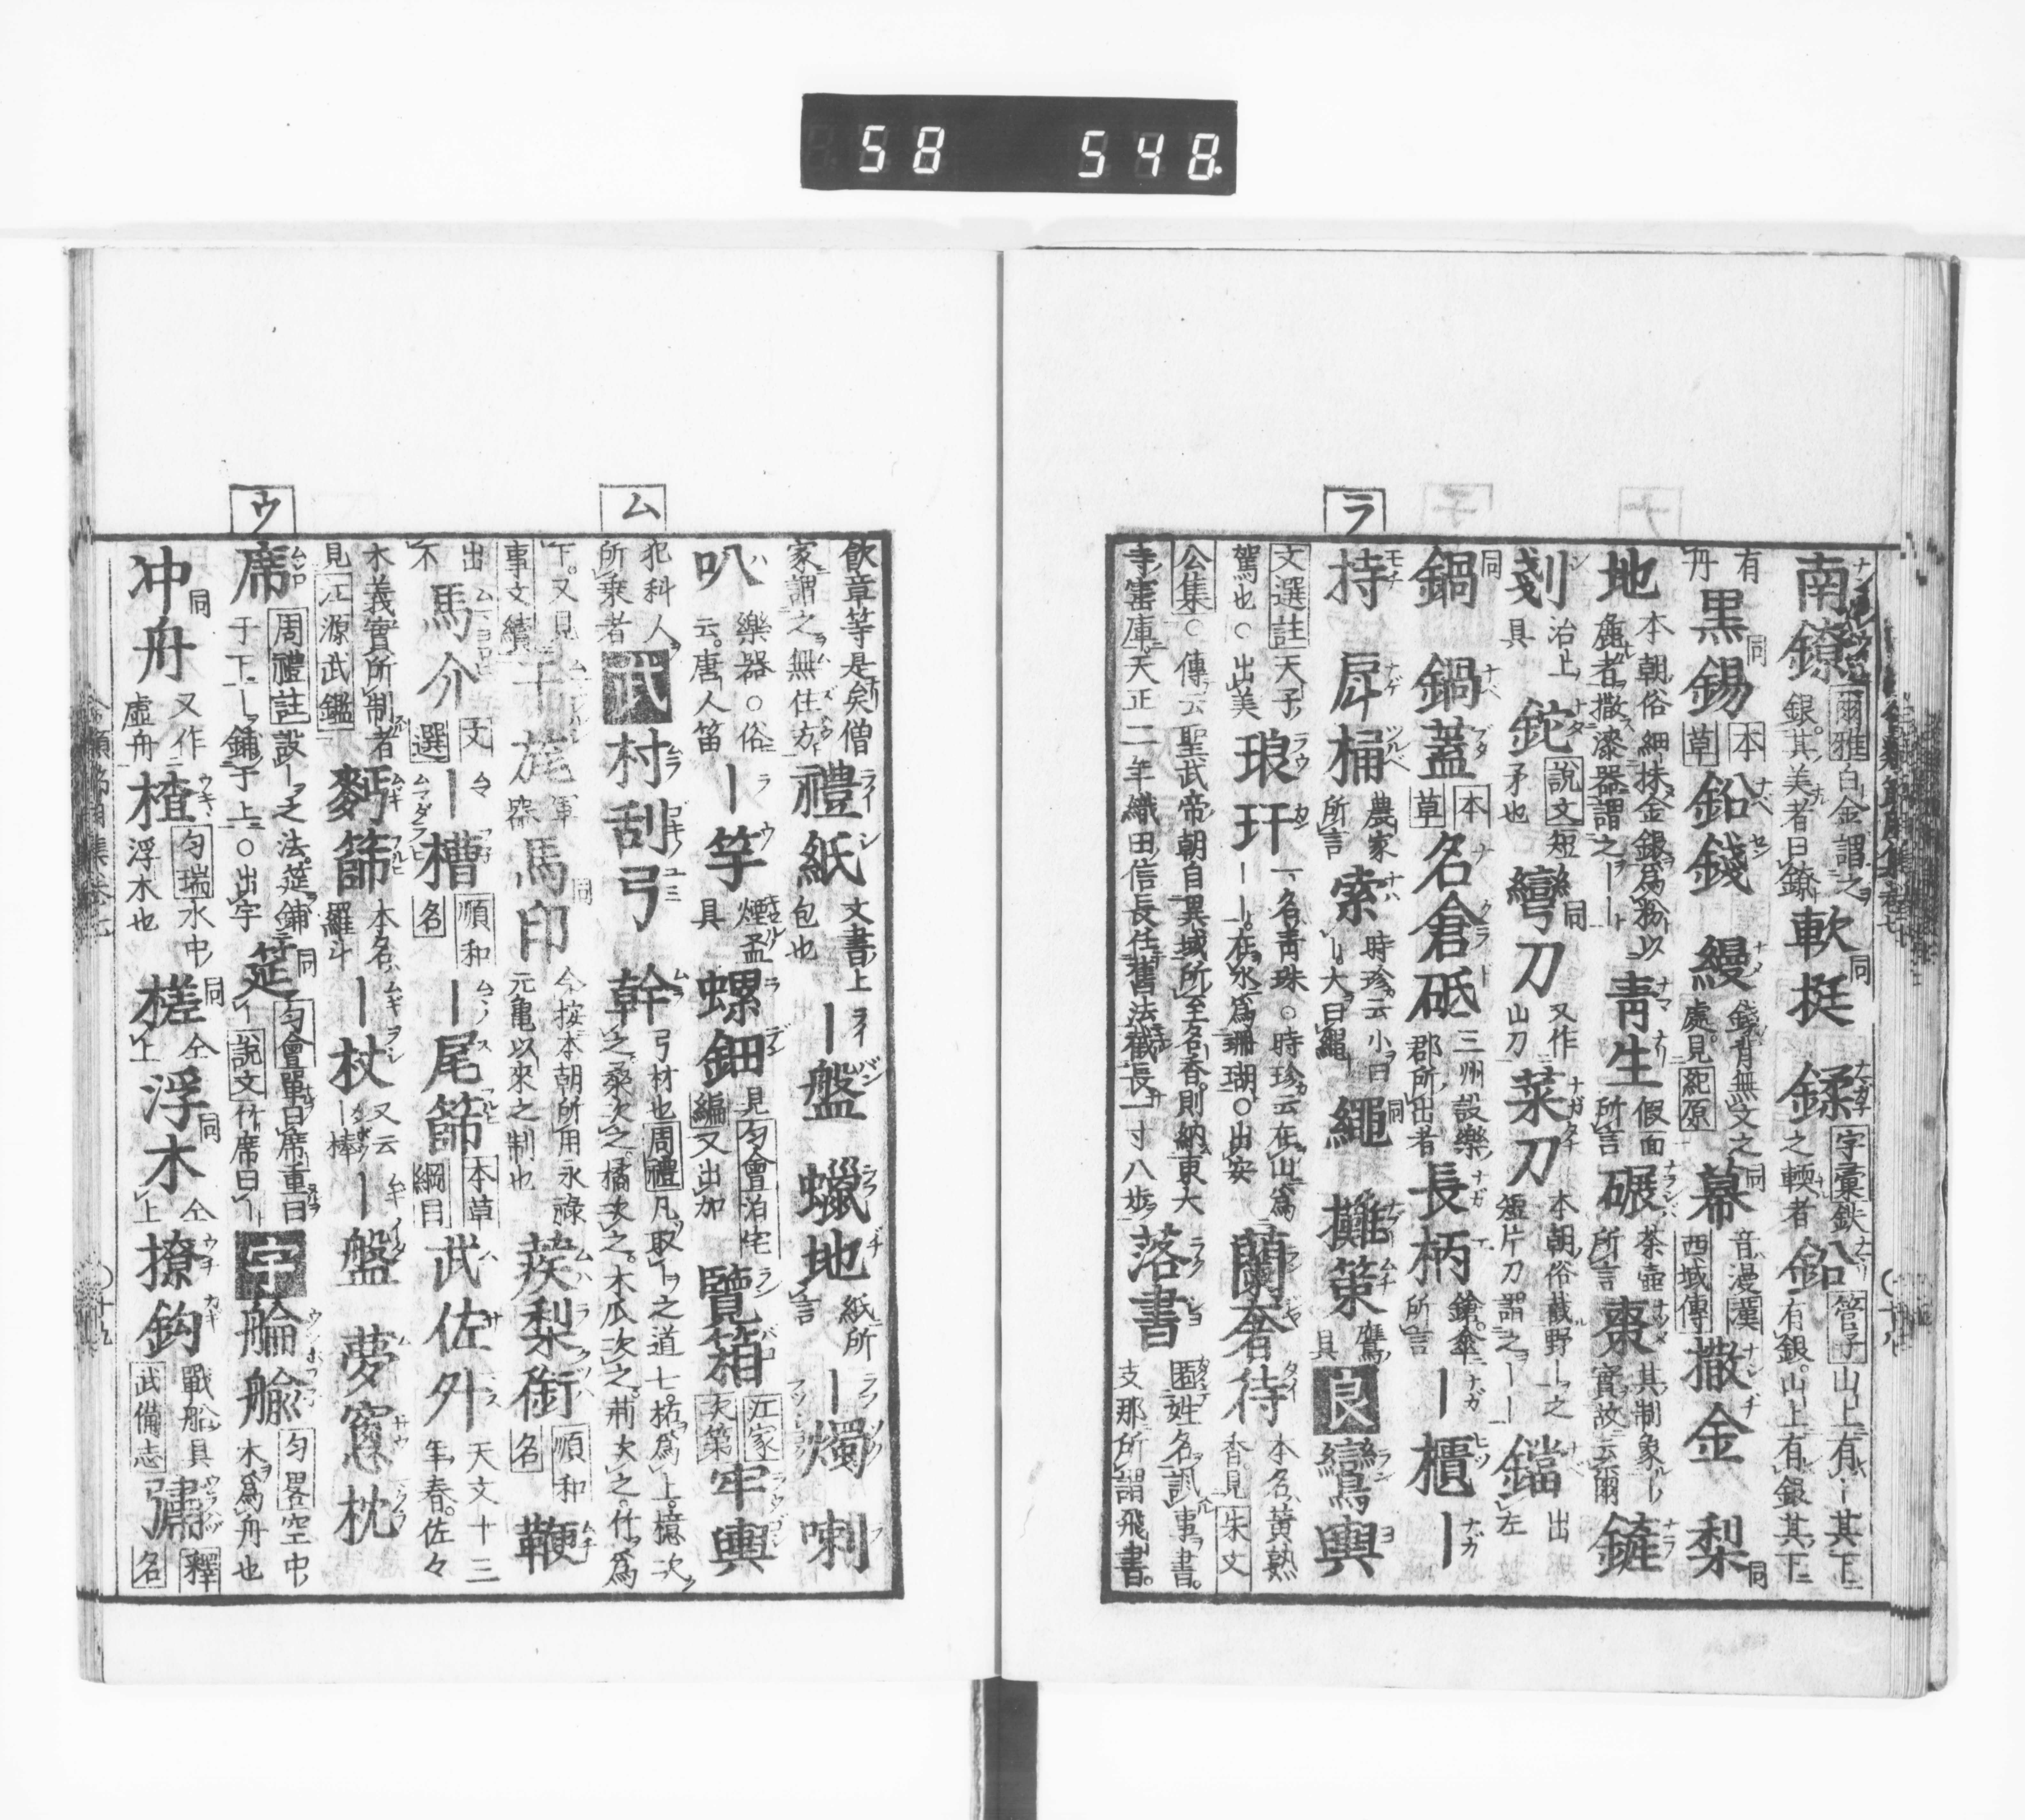 58 548
ラ
南鐐 爾雅白金謂之銀其美者曰鐐 軟挺同 鍒 字彙鉄之輭者 鉛 管子山上有｜其下有銀山上有銀其下
有丹 黒錫同 本草 鉛錢 縵 錢背無文之處見紀原 幕同 音漫漢西域傳 撒金 梨同
地 本朝俗細抹金銀爲粉以麁者撒漆器謂之｜｜ 青生 假面所言 碾 茶壺所言 棗 其制象｜實故云爾 鏟
剗 冶上具 鉈 説文短矛也 鐏同 刀 又作山刀 菜刀 本朝俗截野｜之短片刀謂之｜｜ 鐺 出左
鍋同 鍋蓋 本草 名倉砥 三州設樂郡所出者 長柄 鎗傘所言 ｜櫃｜
持 戽桶 農家所言 索 時珍云小曰｜大曰繩 繩同 攤策 鷹具 良 鸞輿
文選註天子駕也○出美 琅玕 一名青珠○時珍云在山爲｜｜在水爲珊瑚○出安 蘭奢待 本名黄熟香見朱文
公集○傳云聖武帝朝自異域所至名香則納東大寺寳庫天正二年織田信長任舊法截長一寸八歩 落書 匿姓名諷事書支那所謂飛書
ム
ウ
飲章等是矣僧家謂之無住方 禮紙 文書上包也 ｜盤 蠟地 紙所言 ｜燭 喇
叭 樂器○俗云唐人笛 ｜竿 煙盃具 螺鈿 見匀會泊宅編又出加 覽箱 江家次第 牢輿
犯科人所乘者 武 村刮弓 幹 弓材也周禮凡取｜之道七柘爲上檍次之桑次之橘次之木瓜次之荊次之竹爲
下又見事文續 干旄 軍器 馬印同 今按本朝所用永祿元亀以來之制也 蒺梨銜 順和名 鞭
出不 馬介 文選 ｜槽 順和名 ｜尾篩 本草綱目 武佐外 天文十三年春佐々
木義實所制者見江源武鑑 麪篩 本名羅斗 ｜杖 又云｜棒 ｜盤 夢窻枕
席 周禮註設｜之法筵鋪于下｜鋪于上○出宇 筵同 匀會單曰席重曰｜説文竹席曰｜ 宇 艫艅 匀畧空中木爲舟也
冲舟同 又作虚舟 楂 匀瑞水中浮木也 槎同 仝上 浮木同 仝上 撩鈎 戰船具武備志 彇 釋名